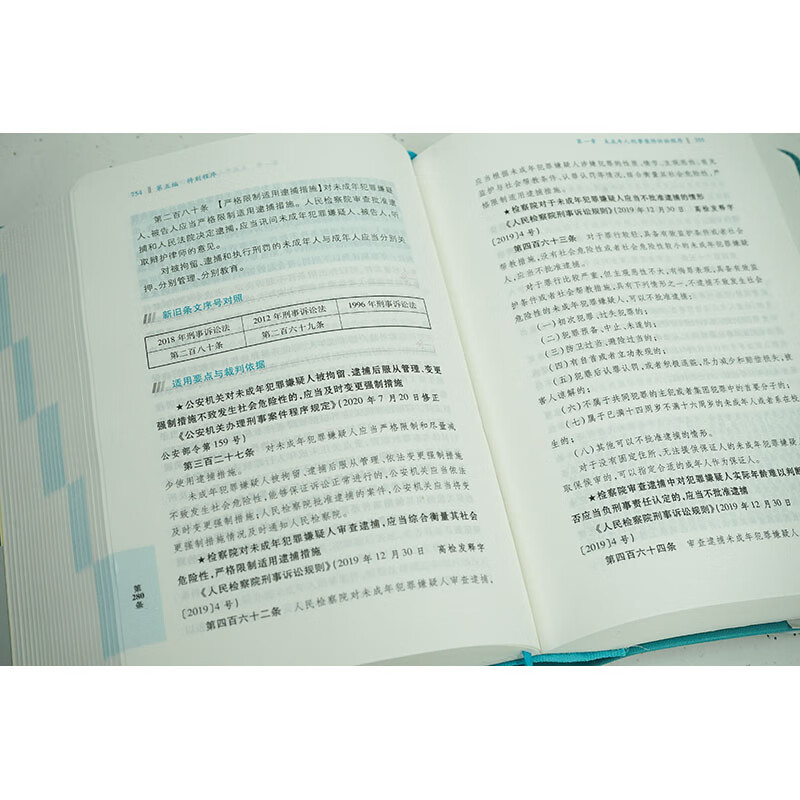 751 第五编 特别程序
第二百八十条 【严格限制适用逮捕措施】对未成年犯罪嫌疑
人、被告人应当严格限制适用逮捕措施。人民检察院审查批准逮
捕和人民法院决定逮捕,应当讯问未成年犯罪嫌疑人、被告人,听
取辩护律师的意见。
对被拘留、逮捕和执行刑罚的未成年人与成年人应当分别关
押、分别管理、分别教育。
新旧条文序号对照
2018 年刑事诉讼法 2012 年刑事诉讼法 1996 年刑事诉讼法
第二百八十条 第二百六十九条
适用要点与裁判依据
★公安机关对未成年犯罪嫌疑人被拘留、逮捕后服从管理、变更
强制措施不致发生社会危险性的,应当及时变更强制措施
《公安机关办理刑事案件程序规定》(2020 年 7 月 20 日修正
公安部令第 159 号)
第三百二十七条 对未成年犯罪嫌疑人应当严格限制和尽量减
少使用逮捕措施。
未成年犯罪嫌疑人被拘留、逮捕后服从管理、依法变更强制措施
不致发生社会危险性,能够保证诉讼正常进行的,公安机关应当依法
及时变更强制措施;人民检察院批准逮捕的案件,公安机关应当将变
更强制措施情况及时通知人民检察院。
★检察院对未成年犯罪嫌疑人审查逮捕,应当综合衡量其社会
危险性,严格限制适用逮捕措施
《人民检察院刑事诉讼规则》(2019 年 12 月 30 日 高检发释字
〔2019〕4 号)
第四百六十二条 人民检察院对未成年犯罪嫌疑人审查逮捕,
第
280
条
第一章 未成年人刑事案件诉讼程序
应当根据未成年犯罪嫌疑人涉嫌犯罪的性质、情节、主观恶性、有无
监护与社会帮教条件、认罪认罚等情况,综合衡量其社会危险性,严
格限制适用逮捕措施。
★检察院对于未成年犯罪嫌疑人应当不批准逮捕的情形
《人民检察院刑事诉讼规则》(2019 年 12 月 30 日 高检发释字
〔2019〕4 号)
第四百六十三条 对于罪行较轻,具备有效监护条件或者社会
帮教措施,没有社会危险性或者社会危险性较小的未成年犯罪嫌疑
人,应当不批准逮捕。
对于罪行比较严重,但主观恶性不大,有悔罪表现,具备有效监
护条件或者社会帮教措施,具有下列情形之一,不逮捕不致发生社会
危险性的未成年犯罪嫌疑人,可以不批准逮捕:
(一)初次犯罪、过失犯罪的;
(二)犯罪预备、中止、未遂的;
(三)防卫过当、避险过当的;
(四)有自首或者立功表现的;
(五)犯罪后认罪认罚,或者积极退赃,尽力减少和赔偿损失,被
害人谅解的;
(六)不属于共同犯罪的主犯或者集团犯罪中的首要分子的;
(七)属于已满十四周岁不满十六周岁的未成年人或者系在校
生的;
(八)其他可以不批准逮捕的情形。
对于没有固定住所、无法提供保证人的未成年犯罪嫌疑
取保候审的,可以指定合适的成年人作为保证人。
★检察院审查逮捕中对犯罪嫌疑人实际年龄难以判断
否应当负刑事责任认定的,应当不批准逮捕
《人民检察院刑事诉讼规则》(2019 年 12 月 30 日
〔2019〕4 号)
第四百六十四条 审查逮捕未成年犯罪嫌疑人